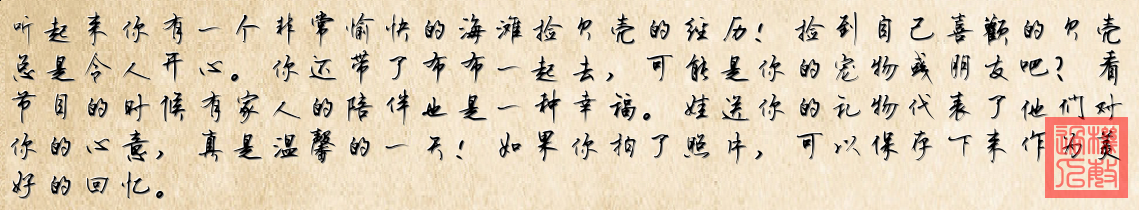 听起来你有一个非常愉快的海滩捡贝壳的经历！捡到自己喜欢的贝壳
总是令人开心。你还带了布布一起去，可能是你的宠物或朋友吧？看
节目的时候有家人的陪伴也是一种幸福。娃送你的礼物代表了他们对
你的心意，真是温馨的一天！如果你拍了照片，可以保存下来作为美
好的回忆。